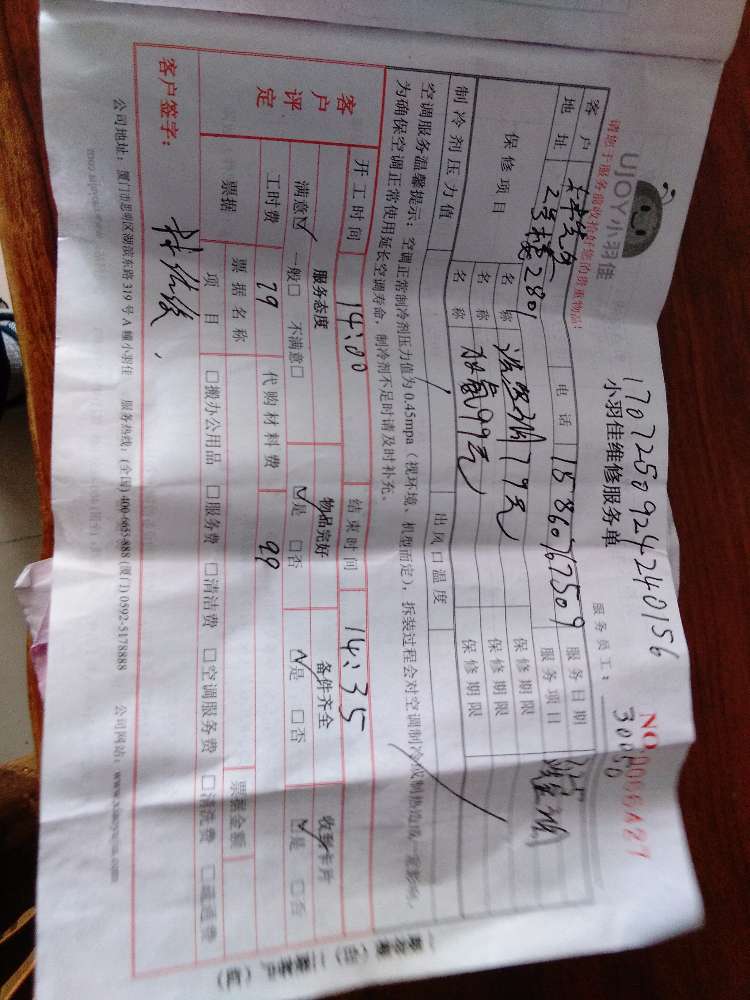 UJOY小羽佳
17072509242240156
NO 0056487
30050
小羽佳维修服务单
服务员工:
请您于服务前收拾好您的贵重物品!
客户地址
2号楼2801
电话 15860767509
服务日期
服务项目
保修项目
名称 79元
保修期限
名称 加氟99元
保修期限
名称
保修期限
制冷剂压力值
出风口温度
空调服务温馨提示:空调正常制冷剂压力值为0.45mpa(视环境、机型而定),拆装过程会对空调制冷或制热造成一定影响,
为确保空调正常使用延长空调寿命,制冷剂不足时请及时补充。
开工时间 14:00 结束时间 14:35
客户评定
服务态度 物品完好 备件齐全 收到卡片
满意☑ 一般□ 不满意□ ☑是 □否 ☑是 □否 ☑是 □否
工时费 79 代购材料费 99
票据
票据名称
票据金额
项目 □搬办公用品 □服务费 □清洁费 □空调服务费 □清洗费 □疏通费
客户签字:
公司地址:厦门市思明区湖滨东路319号A幢小羽佳 服务热线:(全国)400-665-888 (厦门)0592-5178888 公司网站:www.xiaoyujia.com